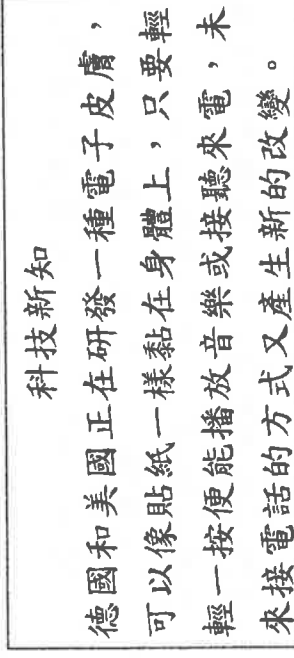 科技新知
德國和美國正在研發一種電子皮膚，
可以像貼紙一樣黏在身體上，只要輕
輕一按便能播放音樂或接聽來電，未
來接電話的方式又產生新的改變。